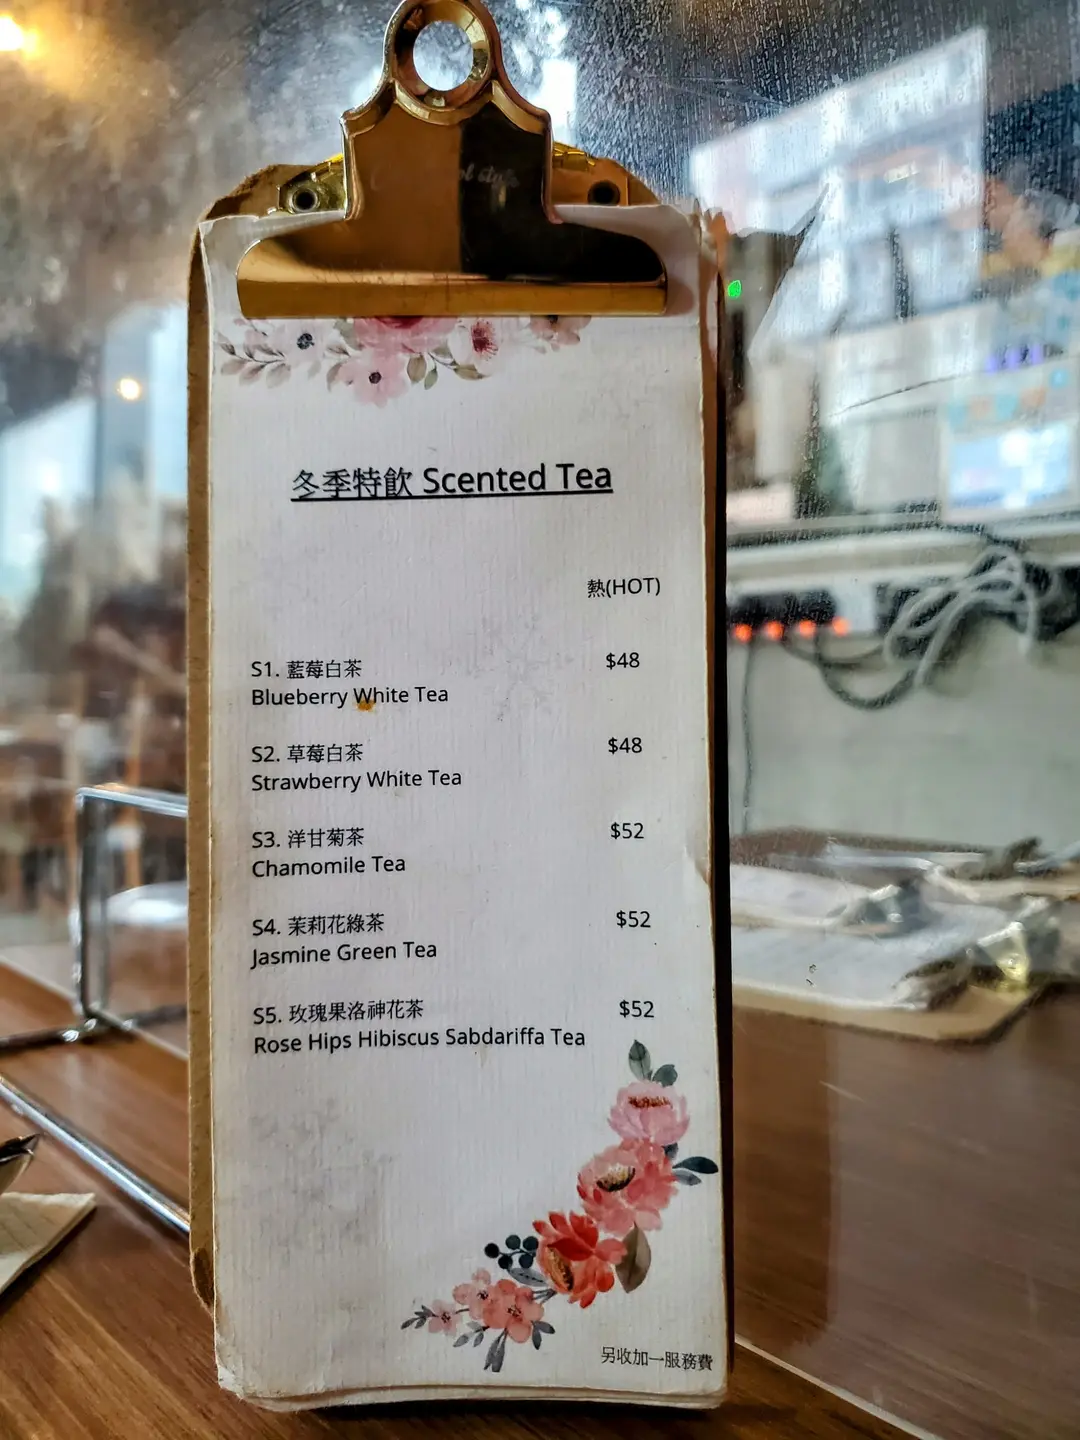 冬季特飲 Scented Tea
熱(HOT)
S1. 藍莓白茶 $48
Blueberry White Tea
S2. 草莓白茶 $48
Strawberry White Tea
S3. 洋甘菊茶 $52
Chamomile Tea
S4. 茉莉花綠茶 $52
Jasmine Green Tea
S5. 玫瑰果洛神花茶 $52
Rose Hips Hibiscus Sabdariffa Tea
另收加一服務費